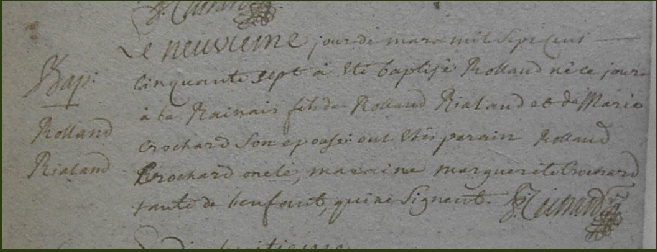 Le neuvieme jour de mars mil sept cens
cinquante sept à été baptisé Rolland né ce jour
à la Rainais fils de Rolland Rialand et de Marie
Brochard son epouse ont étés parain Rolland
Brochard oncle, maraine marguerite Brochard
tante de l'enfant, qui ne signent.
Bap:
Rolland
Rialand